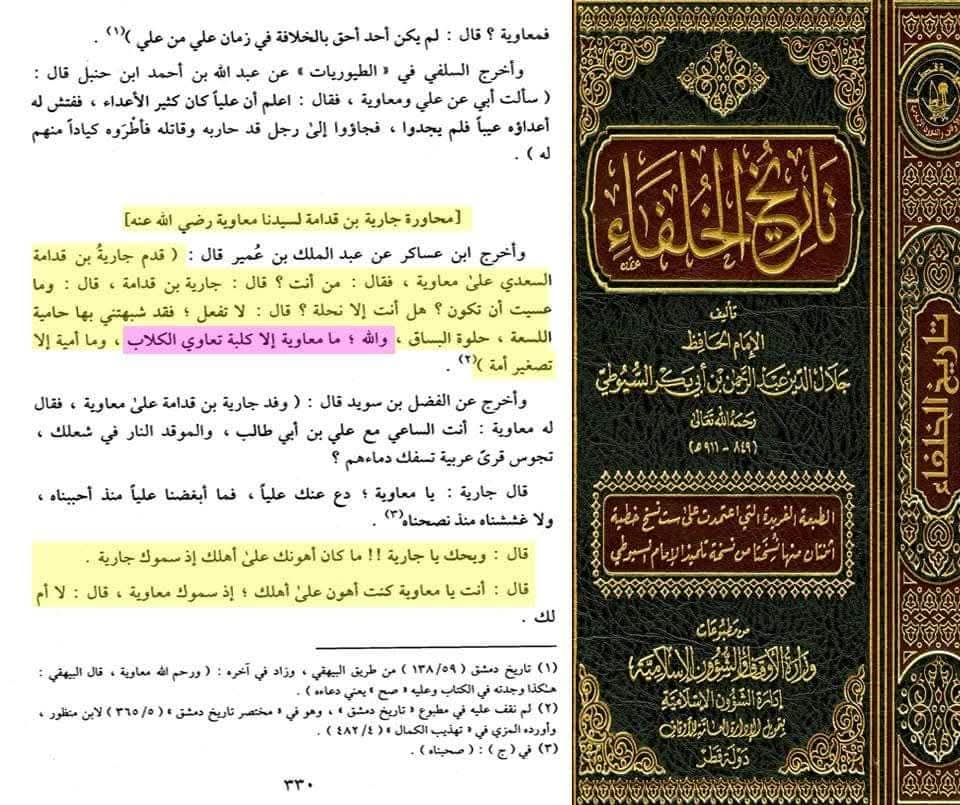 فمعاوية ؟ قال : لم يكن أحد أحق بالخلافة في زمان علي من علي )(١) .
وأخرج السلفي في « الطيوريات » عن عبد الله بن أحمد ابن حنبل قال :
( سألت أبي عن علي ومعاوية ، فقال : اعلم أن علياً كان كثير الأعداء ، ففتش له
أعداؤه عيباً فلم يجدوا ، فجاؤوا إلىٰ رجل قد حاربه وقاتله فأطْرَوه كياداً منهم
له ) .
[محاورة جارية بن قدامة لسيدنا معاوية رضي الله عنه]
وأخرج ابن عساكر عن عبد الملك بن عُمير قال : ( قدم جاريةُ بن قدامة
السعدي علىٰ معاوية ، فقال : من أنت ؟ قال : جارية بن قدامة ، قال : وما
عسيت أن تكون ؟ هل أنت إلا نحلة ؟ قال : لا تفعل ؛ فقد شبهتني بها حامية
اللسعة ، حلوة البساق ، والله ؛ ما معاوية إلا كلبة تعاوي الكلاب ، وما أمية إلا
تصغير أمة )(٢) .
وأخرج عن الفضل بن سويد قال : ( وفد جارية بن قدامة علىٰ معاوية ، فقال
له معاوية : أنت الساعي مع علي بن أبي طالب ، والموقد النار في شعلك ،
تجوس قرىً عربية تسفك دماءهم ؟
قال جارية : يا معاوية ؛ دع عنك علياً ، فما أبغضنا علياً منذ أحببناه ،
ولا غششناه منذ نصحناه(٣) .
قال : ويحك يا جارية !! ما كان أهونك علىٰ أهلك إذ سموك جارية .
قال : أنت يا معاوية كنت أهون علىٰ أهلك ؛ إذ سموك معاوية ، قال : لا أم
لك .
(١) تاريخ دمشق ( ٥٩/ ١٣٨ ) من طريق البيهقي ، وزاد في آخره : ( ورحم الله معاوية ، قال البيهقي :
هٰكذا وجدته في الكتاب وعليه « صح » يعني دعاءه ) .
(٢) لم نقف عليه في مطبوع « تاريخ دمشق » ، وهو في « مختصر تاريخ دمشق » ( ٥/ ٣٦٥ ) لابن منظور ،
وأورده المزي في « تهذيب الكمال » ( ٤/ ٤٨٢ ) .
(٣) في (ج) : ( صحبناه ) .
٣٣٠
تاريخ الخلفاء
تأليف
الإمام الحافظ
جلال الدين عبد الرحمن بن أبي بكر السيوطي
رحمه الله تعالى
(٨٤٩ - ٩١١ هـ)
الطبعة الفريدة التي اعتمدت على ست نسخ خطية
اثنتان منها نُسختا من نسخة تلميذ الإمام السيوطي
من مطبوعات
وزارة الأوقاف والشؤون الإسلامية
إدارة الشؤون الإسلامية
بتمويل الإدارة العامة للأوقاف
دولة قطر
تاريخ الخلفاء